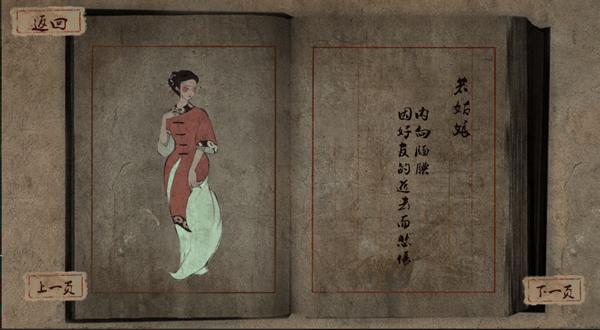 返回
芸姑娘
内向腼腆
因好友的逝去而悲伤
上一页
下一页